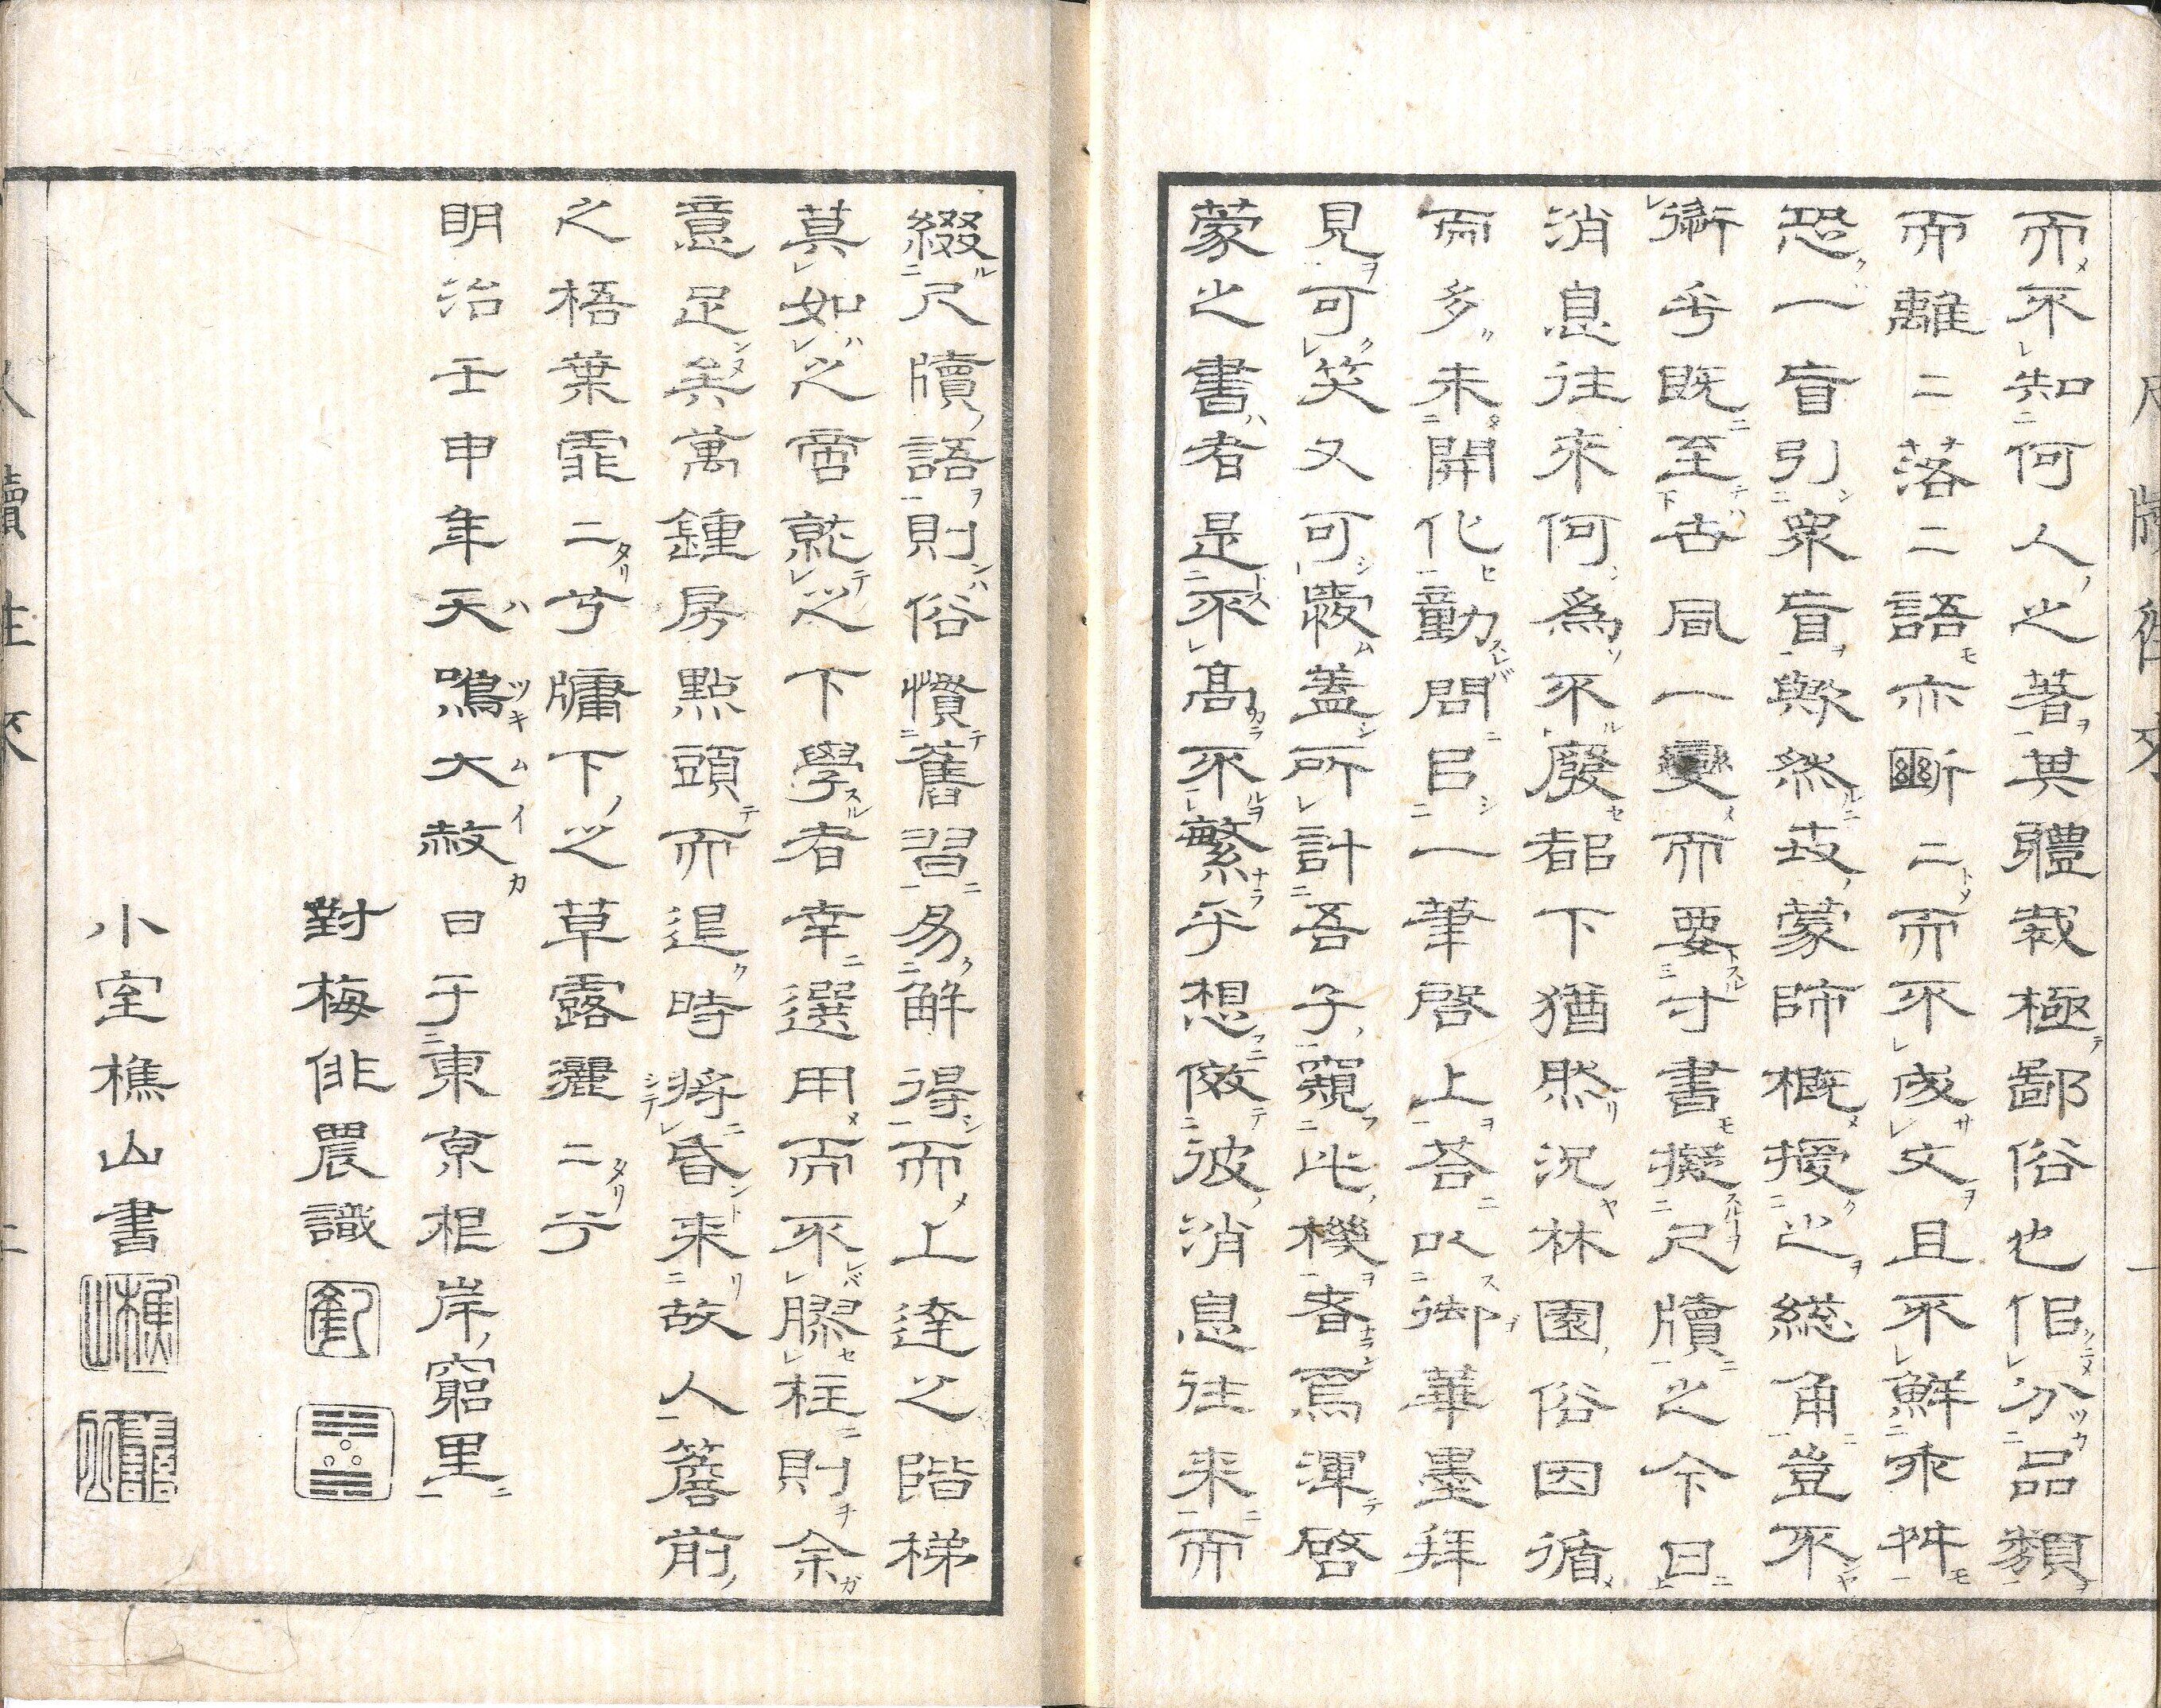 而不知何人之著其體裁極鄙俗也但分品類
而離二落二語亦斷二而不成文且不鮮乖舛
恐一盲引衆盲歟然夫蒙師概授之総角豈不
衒乎既至古風一變而要寸書擬尺牘之今日
消息往來何爲不廢都下猶然況林園俗因循
而多未開化動問㠯一筆啓上荅以御華墨拜
見可笑又可憐蓋所計吾子窺此機者焉渾啓
蒙之書者是不高不繁乎想倣彼消息往来而
綴尺牘語則俗慣舊習易解得而上達之階梯
莫如之啻就之下學者幸選用而不膠柱則余
意足矣萬鍾房點頭而退時将昏来故人簷前
之梧葉霏二兮牗下之草露灑二兮
明治壬申年天鳴大赦日于東京柜岸窮里
對梅俳農識
小室樵山書
樵山
尺牘往來
一
尺牘往來
二